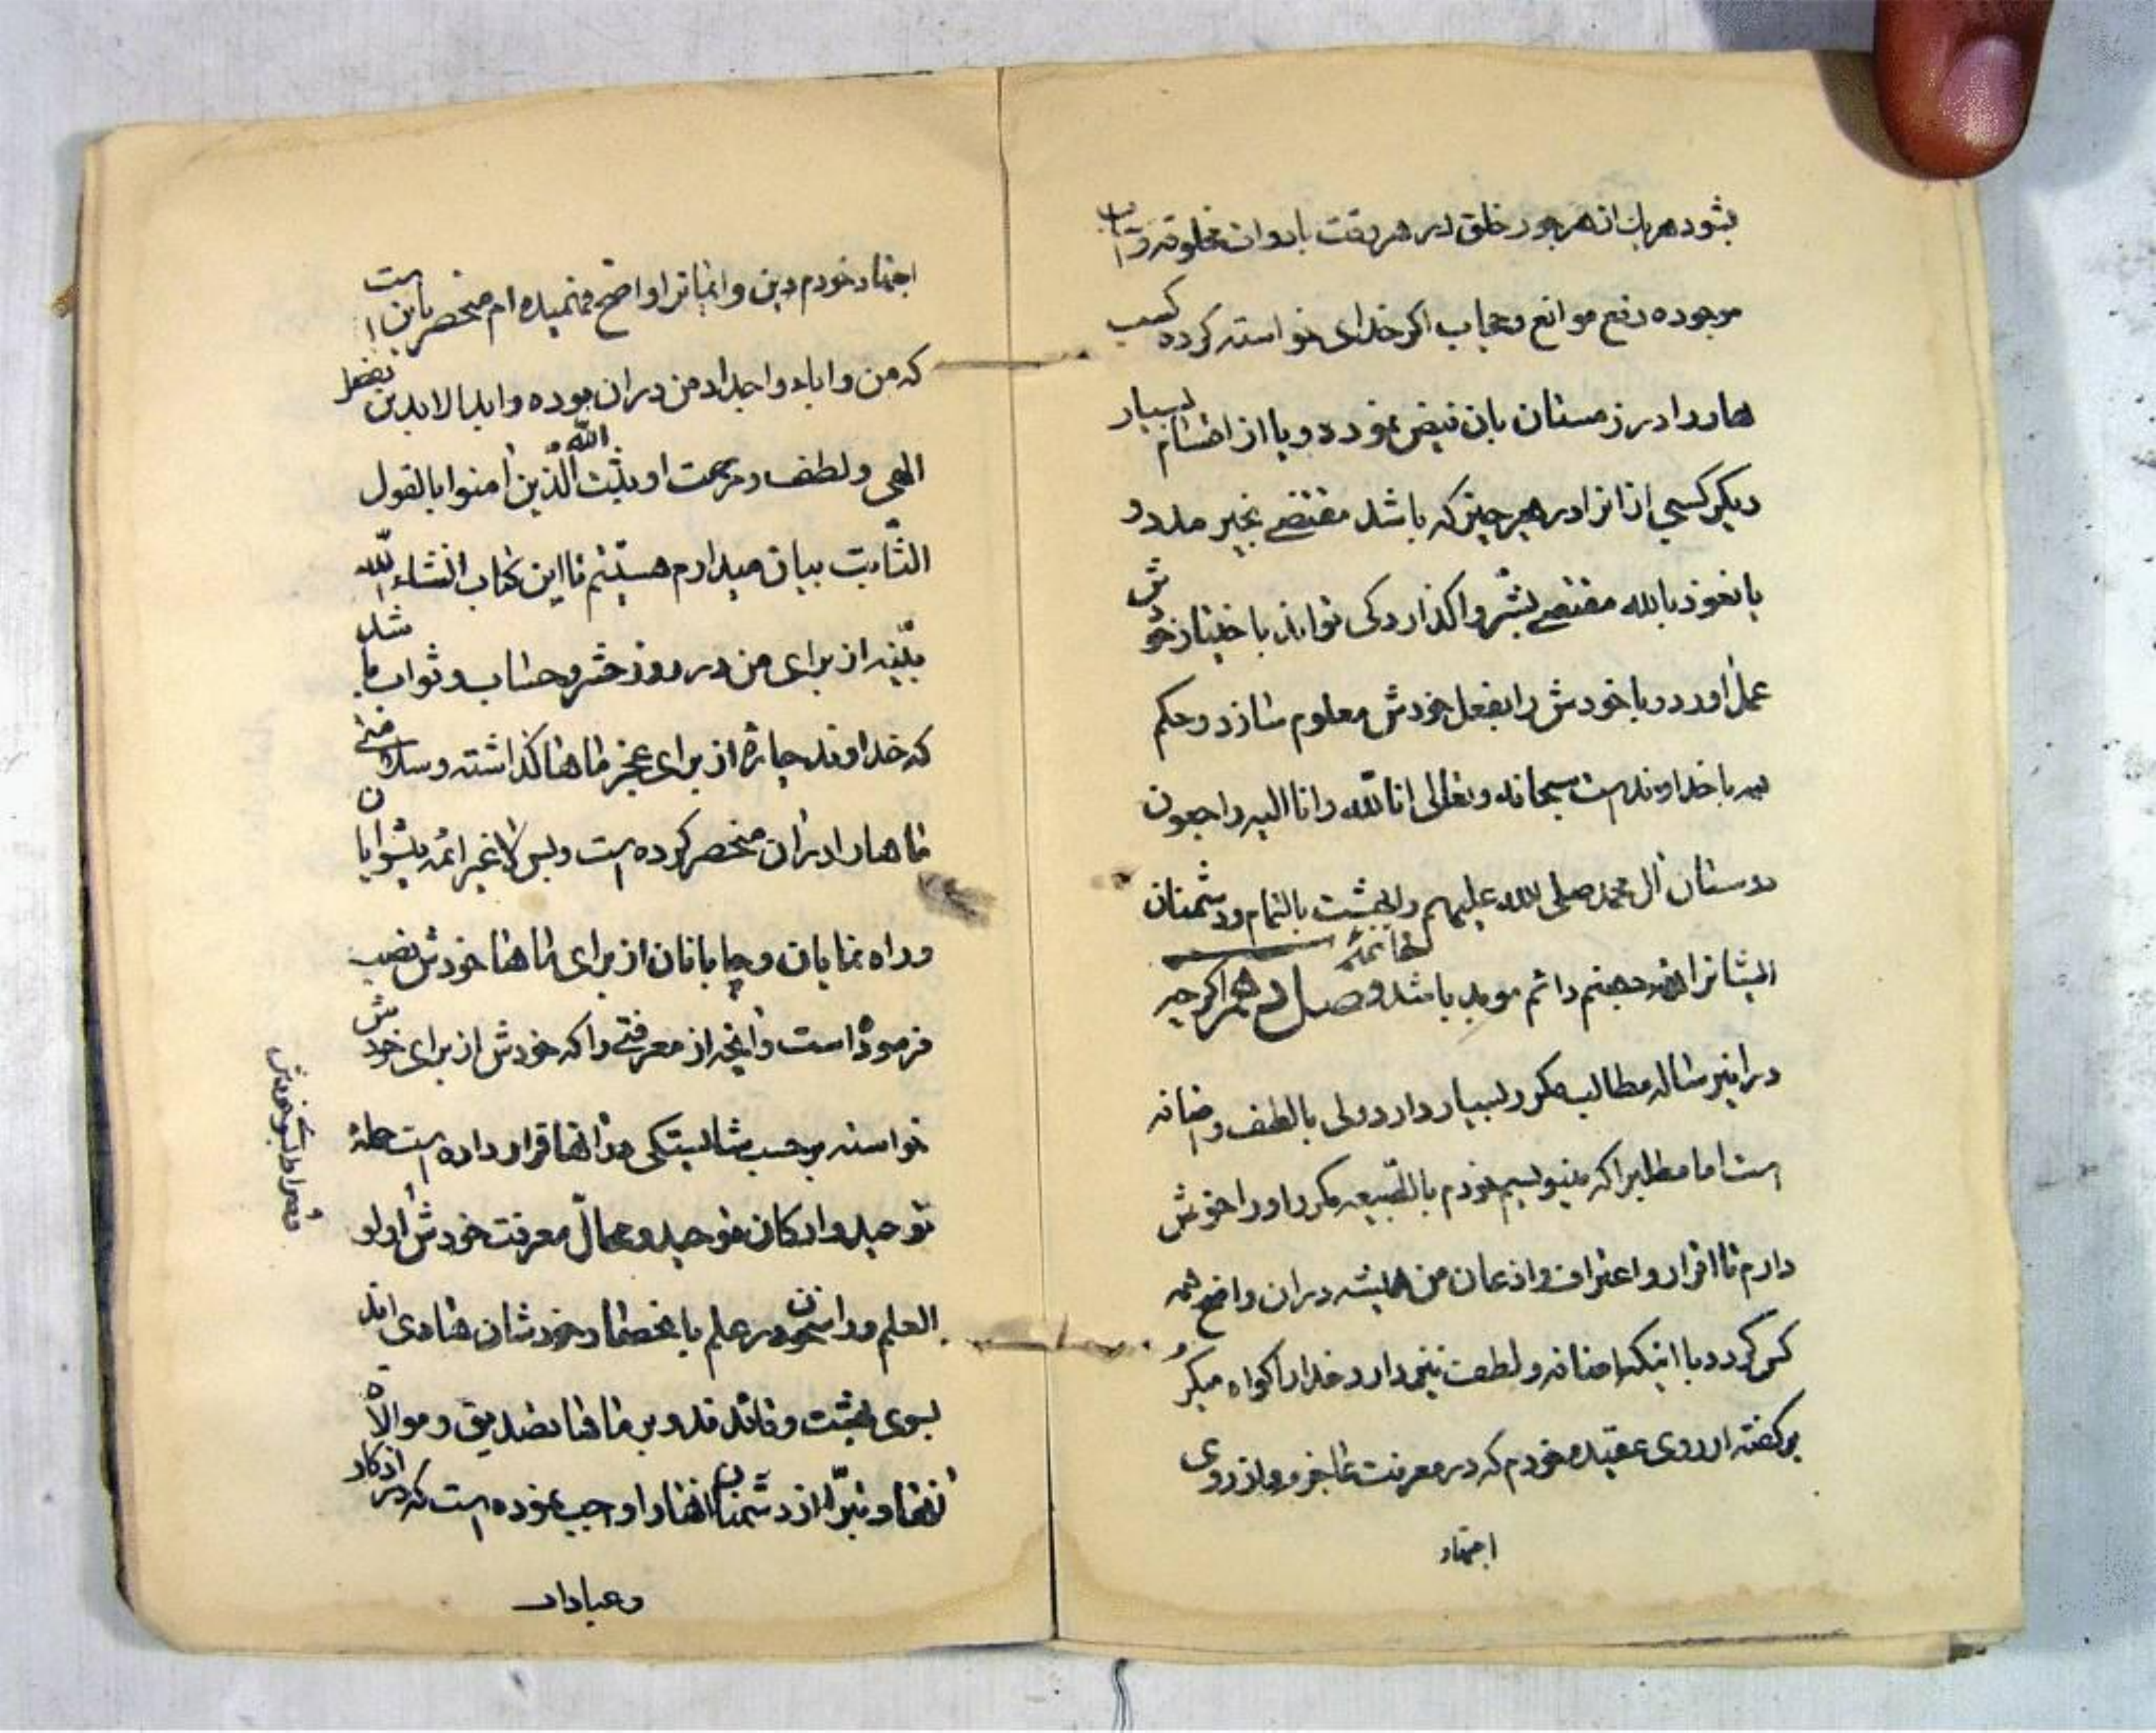 بشود هریک از هر جور خلق در هر وقت با دوات مخلوقه و
موجوده دفع موانع و حجاب اگر خدای خواسته کرده کسب
هارا در زمستان بان فیض نموده و یا از اقسام بسیار
دیگر کسی از انرا در هر چیز که باشد مقتضی بخیر مدد و
یا نعوذ بالله مقتضی بشر واگذارد کی تواند با ختیار خودش
عمل اورد و یا خودش را بفعل خودش معلوم سازد و حکم
همه با خداوند است سبحانه و تعالی انا لله و انا الیه راجعون
دوستان ال محمد صلی الله علیهم را بهشت بالتمام و دشمنان
ایشانرا جهنم دائم موبد باشد خاتمه وصل دهم اگر چه
در این رساله مطالب مکرر بسیار دارد ولی با لطف و ضانه
است اما مطلبرا که مینویسم خودم بالطبیعه مکرر اورا خوش
دارم تا اقرار و اعتراف و اذعان من همیشه در ان واضح همه
کس گردد با اینکه ولطف نیز دارد خدا را گواه میگیر
بر گفته از روی عقیده خودم که در معرفت عاجزم و از روی
اجتهاد
اجتهاد خودم دین و ایمانرا واضح فهمیده ام منحصر باین است
که من و اباء و اجداد من در ان بوده و ابدا لابدین بفضل
الهی و لطف و مرحمت او یثبت الله الذین امنوا بالقول
الثابت بیان میدارم هستیم تا این کتاب انشاء الله
بیّنه از برای من در روز حشر و حساب و ثواب باشد
که خداوند چاره از برای عجز ماها گذاشته و
ماها را در ان منحصر کرده است و بس لا غیر ائمه پیشوایان
و راه نمایان و از برای ماها خودش نصب
فرموده است و انچه از معرفتی را که خودش از برای خودش
خواسته بر حسب شایستگی در انها قرار داده است حمله
توحید و ارکان توحید و عمال معرفت خودش اولو
العلم و راسخون در علم با نحصار خودشان هادی اند
بسوی بهشت و قائد ند و بر ماها تصدیق و موالاة
انها و تبرّا از دشمنان انها را واجب نموده است که در اذکار
و عبادات